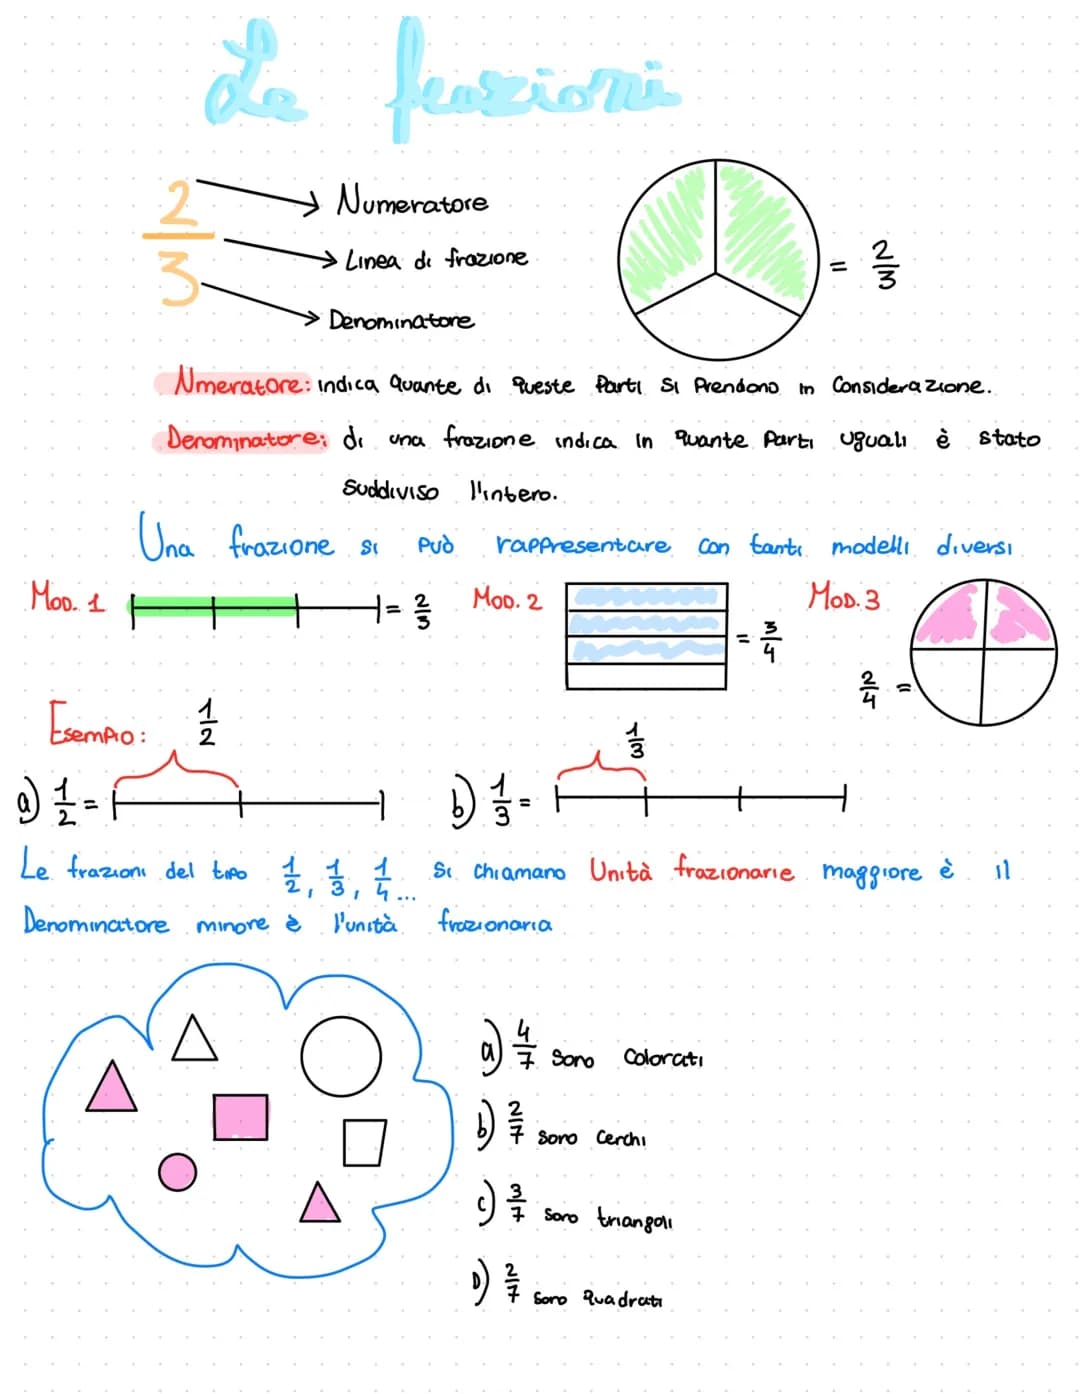 Le frazioni
2/3
Numeratore
Linea di frazione
Denominatore
= 2/3
Nmeratore: indica quante di queste parti si prendono in considerazione.
Denominatore: di una frazione indica in quante parti uguali è stato
suddiviso l'intero.
Una frazione si può rappresentare con tanti modelli diversi
Mod. 1 = 2/3 Mod. 2 = 3/4 Mod. 3 2/4 =
Esempio: 1/2 1/3
a) 1/2 = b) 1/3 =
Le frazioni del tipo 1/2, 1/3, 1/4... si chiamano Unità frazionarie maggiore è il
Denominatore minore è l'unità frazionaria
a) 4/7 sono colorati
b) 2/7 sono cerchi
c) 3/7 sono triangoli
D) 2/7 sono quadrati